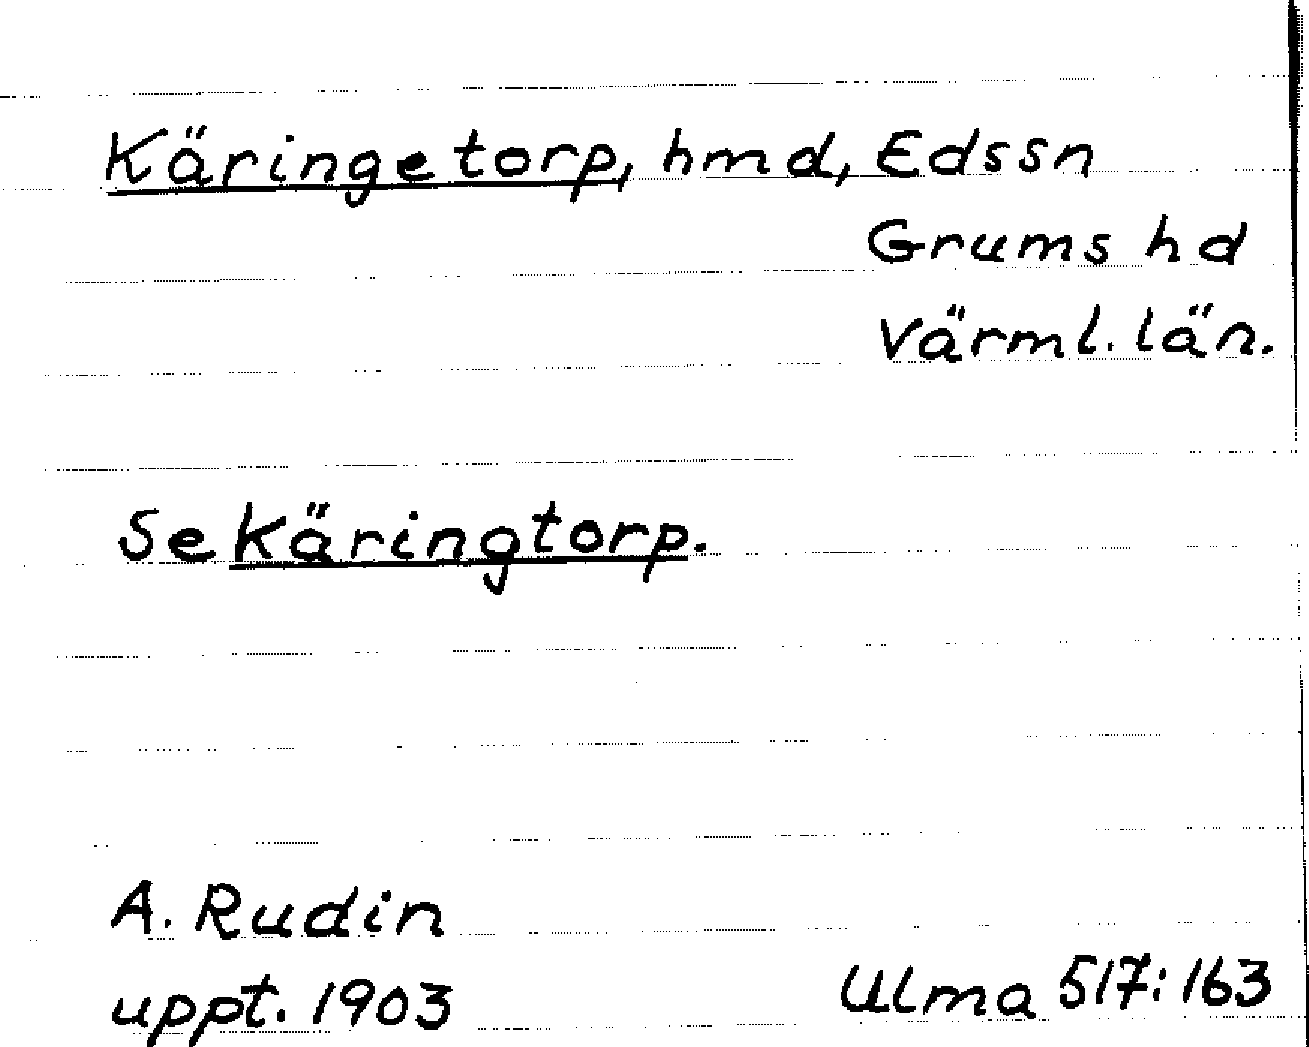 Käringetorp, hmd, Edssn
Grums hd
Värml. län.
Se Käringtorp.
A. Rudin
uppt. 1903
Ulma 517:163